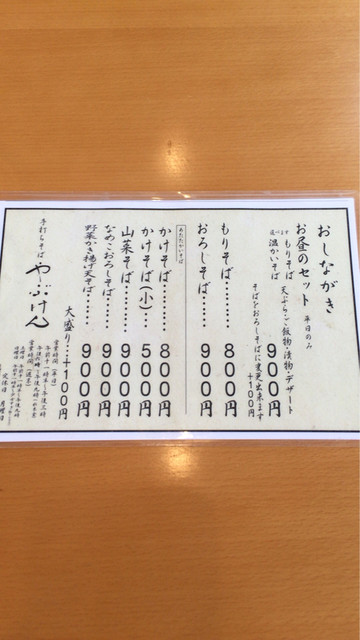 おしながき
お昼のセット 平日のみ
もりそば
温かいそば
天ぷら・ご飯物・漬物・デザート
900円
そばをおろしそばに変更出来ます
+100円
もりそば……… 800円
おろしそば…… 900円
あたたかいそば
かけそば……… 800円
かけそば(小)… 500円
山菜そば……… 900円
なめこおろしそば…… 900円
野菜かき揚げ天そば…… 900円
大盛り…+100円
手打ちそば やぶけん
営業時間【平日】
定休日 月曜日